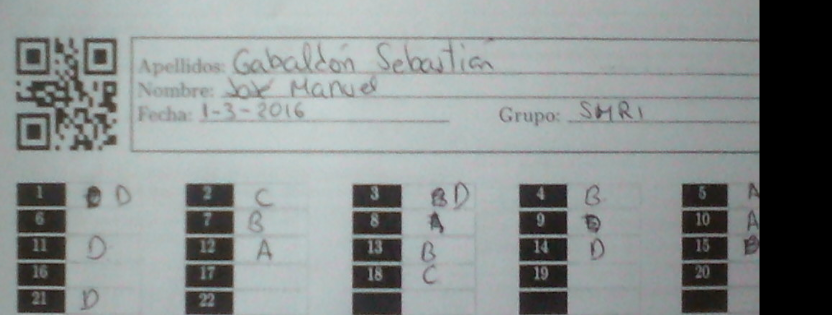 Apellidos: Gabaldón Sebastián
Nombre: José Manuel
Fecha: 1-3-2016 Grupo: SMR1
1 D 2 C 3 D 4 B 5 A
6 7 B 8 A 9 10 A
11 D 12 A 13 B 14 D 15
16 17 18 C 19 20
21 D 22